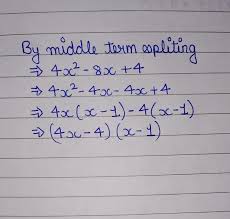 By middle term spliting
⇒ 4x² - 8x + 4
⇒ 4x² - 4x - 4x + 4
⇒ 4x(x-1) - 4(x-1)
⇒ (4x-4) (x-1)